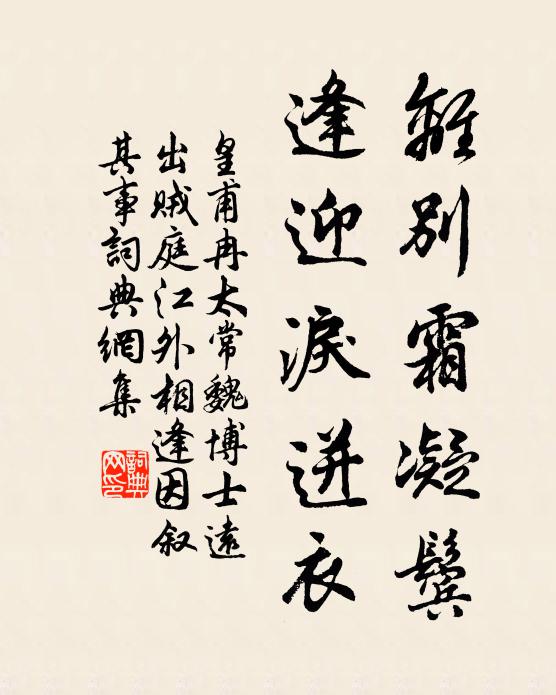 離別霜凝鬢
逢迎淚迸衣
皇甫冉太常魏博士遠
出賊庭江外相逢因叙
其事詞典網集
詞典
网印